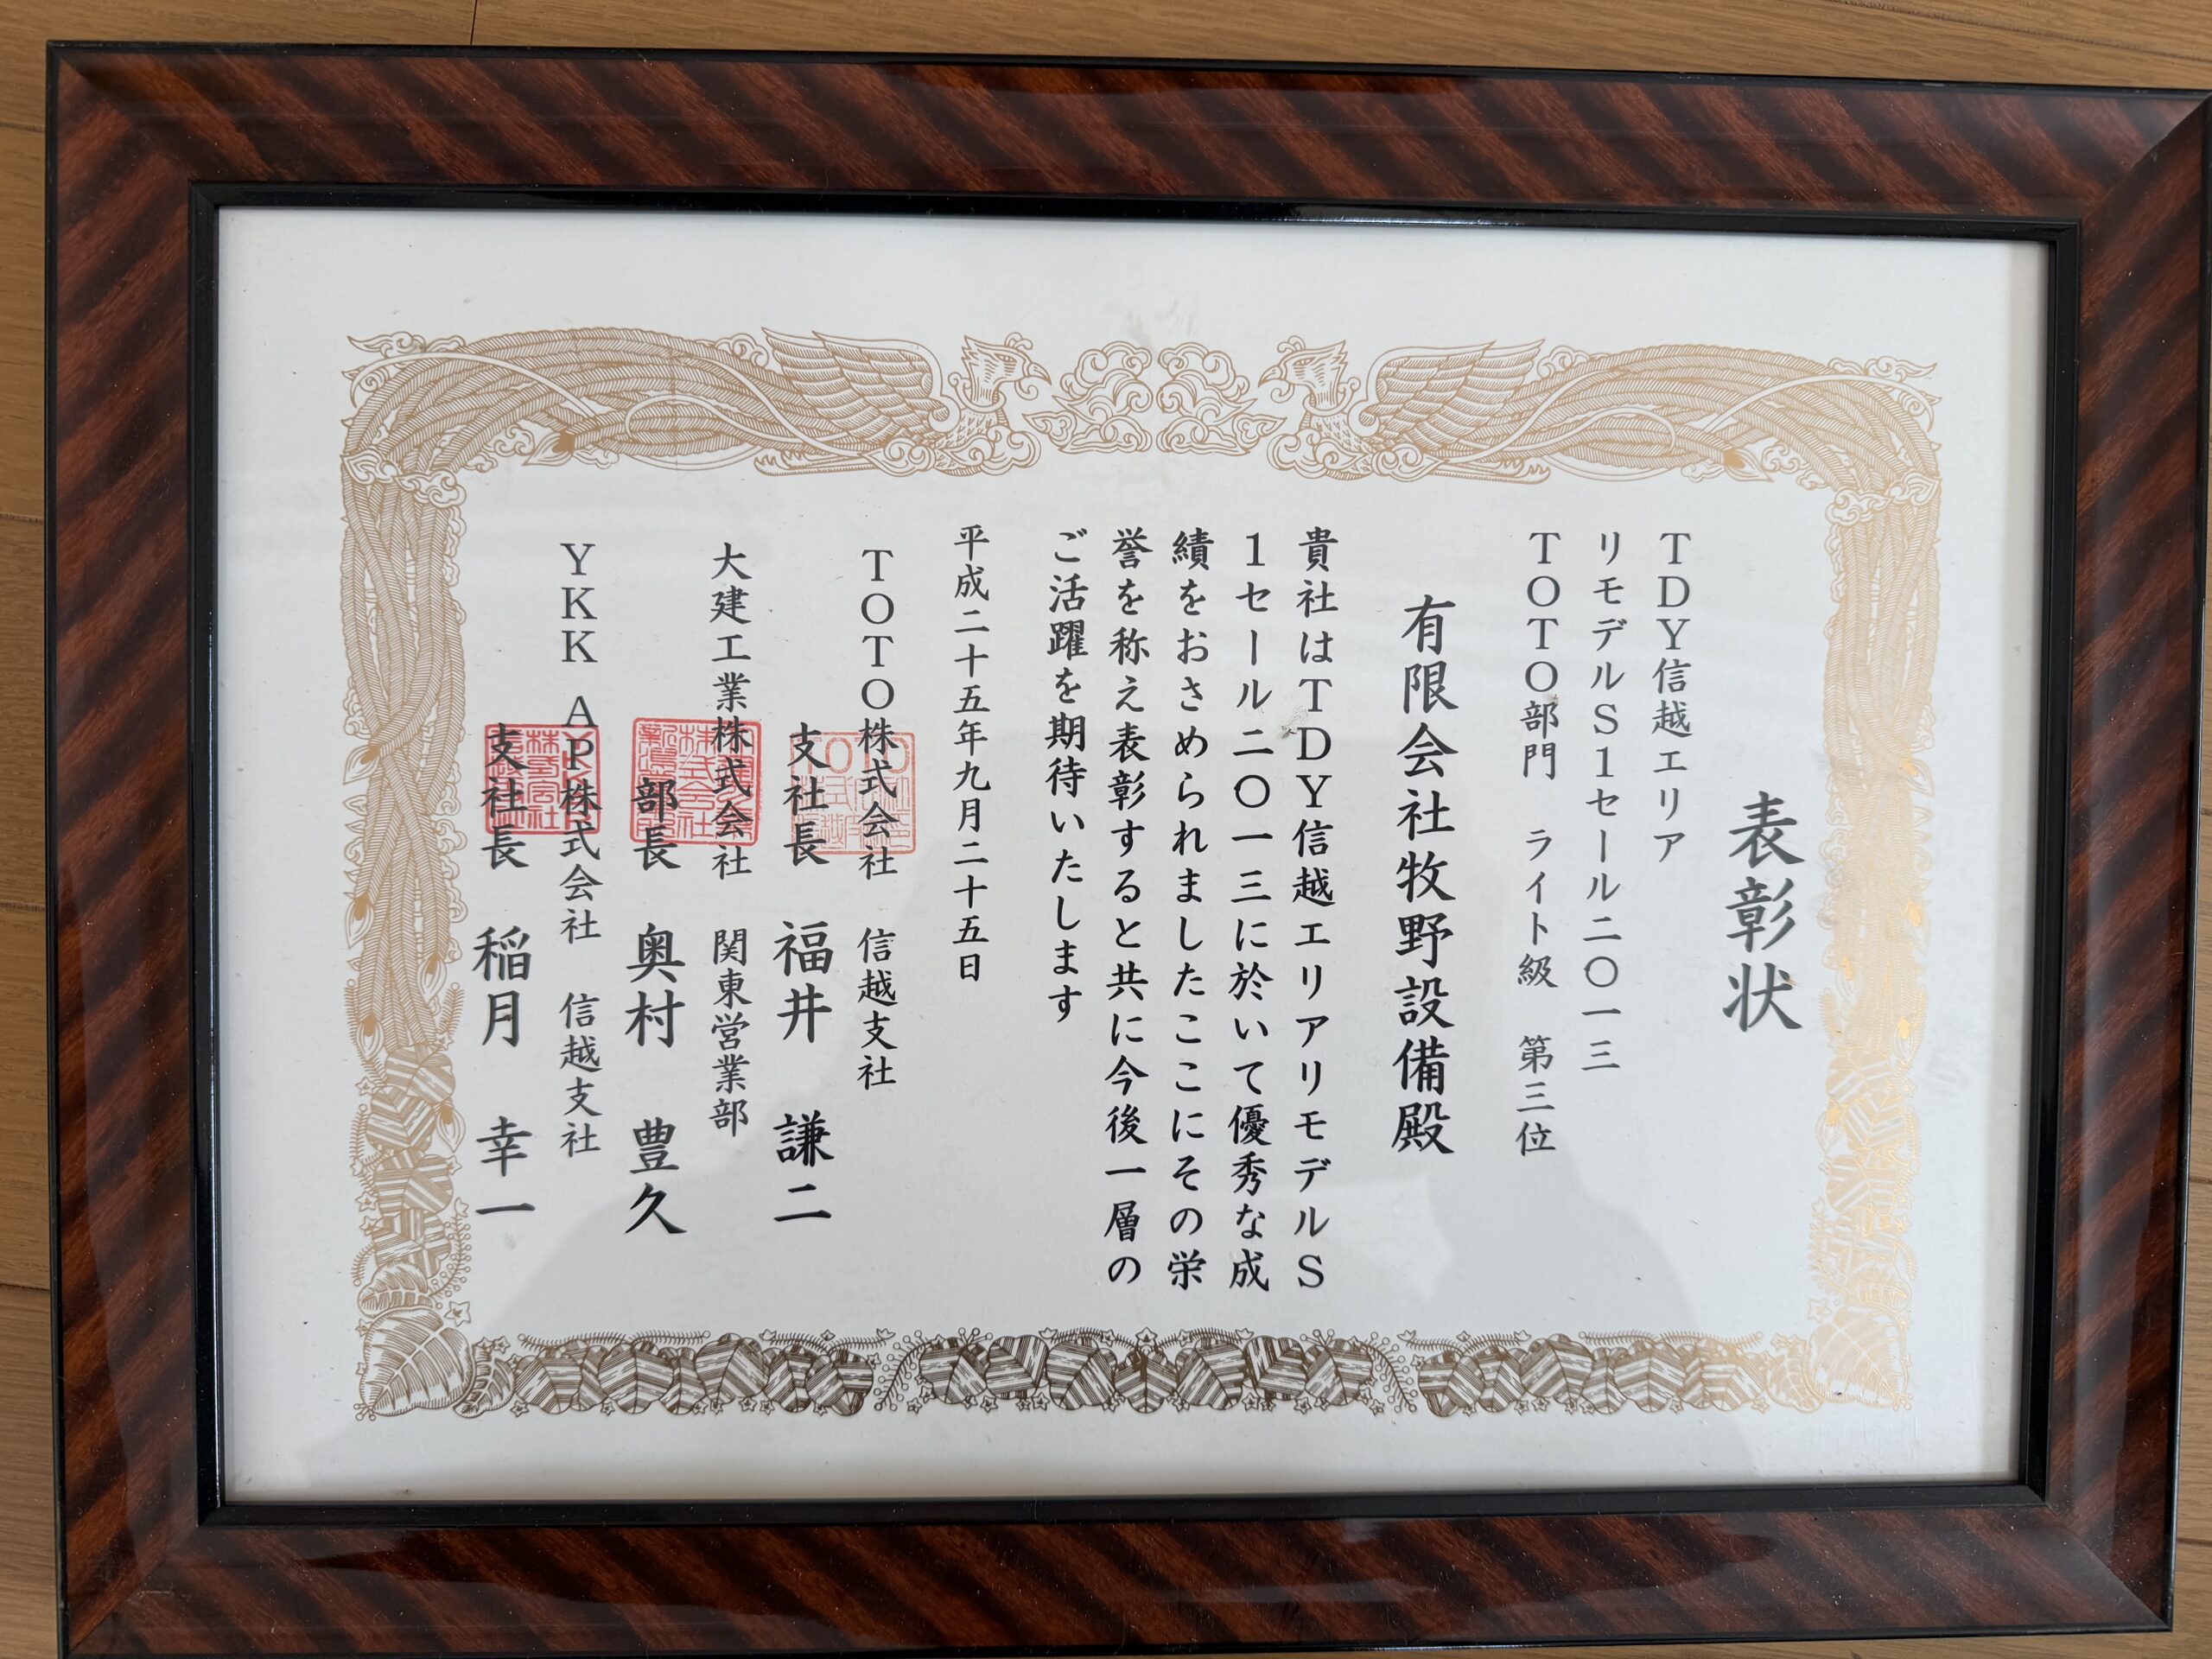 表彰状
TDY信越エリア
リモデルS1セール二〇一三
TOTO部門 ライト級 第三位
有限会社牧野設備殿
貴社はTDY信越エリアリモデルS
1セール二〇一三に於いて優秀な成
績をおさめられましたここにその栄
誉を称え表彰すると共に今後一層の
ご活躍を期待いたします
平成二十五年九月二十五日
TOTO株式会社 信越支社
支社長 福井 謙二
大建工業株式会社 関東営業部
部長 奥村 豊久
YKK AP株式会社 信越支社
支社長 稲月 幸一